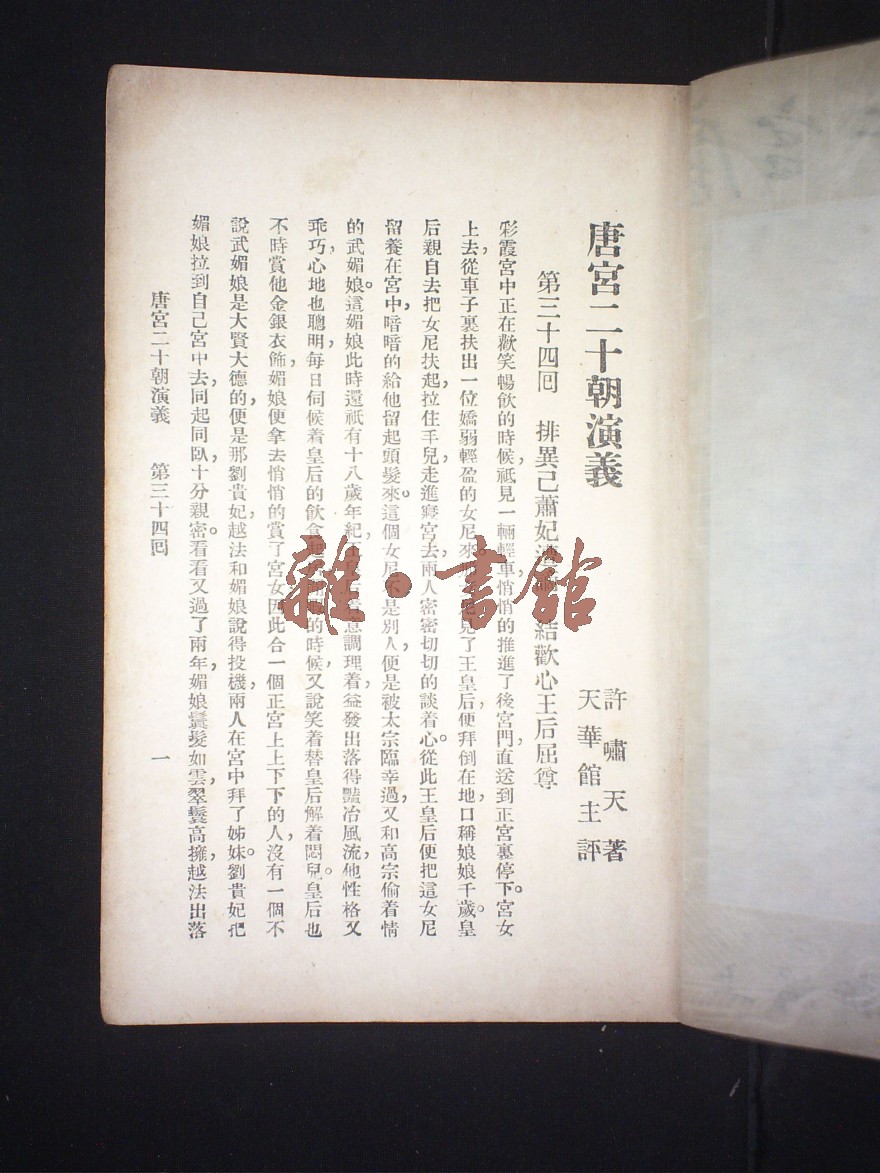 唐宮二十朝演義
許嘯天著
天華館主評
第三十四回　排異己蕭妃　結歡心王后屈尊
彩霞宮中正在歡笑暢飲的時候，祇見一輛輕車，悄悄的推進了後宮門，直送到正宮裏停下。宮女
上去，從車子裏扶出一位嬌弱輕盈的女尼來。見了王皇后，便拜倒在地，口稱娘娘千歲。皇
后親自去把女尼扶起，拉住手兒，走進寢宮去，兩人密密切切的談着心。從此王皇后便把這女尼
留養在宮中，暗暗的給他留起頭髮來。這個女尼不是別人，便是被太宗臨幸過，又和高宗偷着情
的武媚娘。這媚娘此時還祇有十八歲年紀，意調理着，益發出落得豔冶風流，他性格又
乖巧，心地也聰明，每日伺候着皇后的飲食起的時候，又說笑着替皇后解着悶兒。皇后也
不時賞他金銀衣飾，媚娘便拿去悄悄的賞了宮女，因此合一個正宮上上下下的人，沒有一個不
說武媚娘是大賢大德的，便是那劉貴妃，越法和媚娘說得投機，兩人在宮中拜了姊妹。劉貴妃把
媚娘拉到自己宮中去，同起同臥，十分親密。看看又過了兩年，媚娘鬢髮如雲，翠鬟高擁，越法出落
唐宮二十朝演義　第三十四回　一
雜·書館